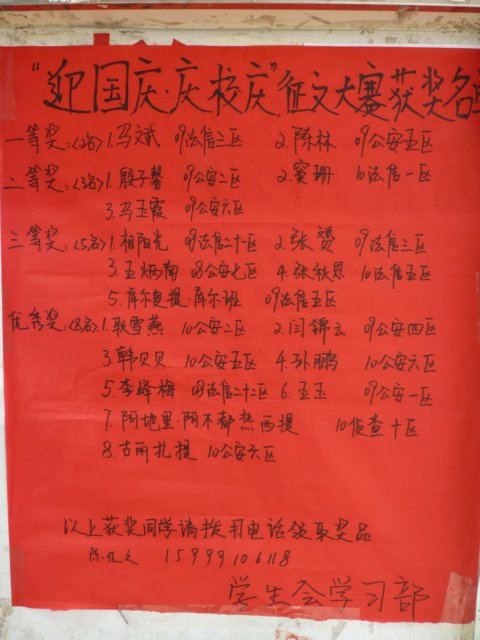 “迎国庆·庆校庆”征文大赛获奖名
一等奖:(2名) 1.马文斌 09法信三区 2.陈林 09公安五区
二等奖:(3名) 1.殷子馨 09公安二区 2.窦珊 10法信一区
3.马玉霞 09公安六区
三等奖:(5名) 1.相阳光 08法信二十区 2.张赟 09法信三区
3.王炳南 08公安七区 4.张秋思 10法信五区
5.库尔夏提·库尔班 09法信五区
优秀奖:(8名) 1.耿雪燕 10公安二区 2.闫锦云 09公安四区
3.韩贝贝 10公安五区 4.孙鹏 10公安六区
5.李峰梅 08法信二十二区 6.王玉 09公安一区
7.阿地里·阿不都热西提 10侦查十区
8.古丽扎提 10公安六区
以上获奖同学请拨书电话领取奖品
15999106118
学生会学习部